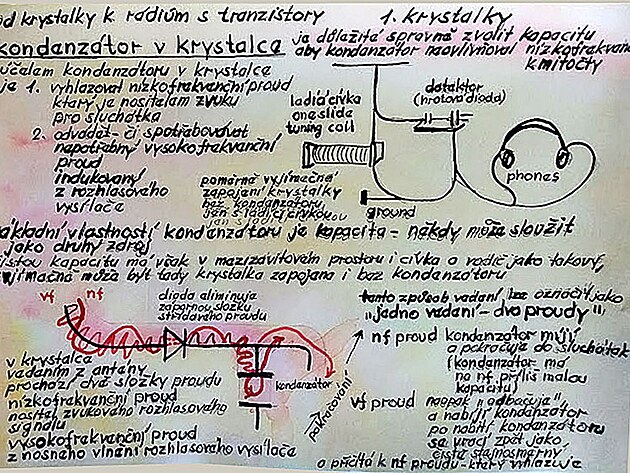 od krystalky k rádiům s tranzistory 1. krystalky
kondenzátor v krystalce
je důležité správně zvolit kapacitu
aby kondenzátor neovlivňoval nízkofrekvenč
kmitočty
účelem kondenzátoru v krystalce
je 1. vyhlazovat nízkofrekvenční proud
který je nositelem zvuku
pro sluchátka
2. odvádět - či spotřebovávat
nepotřebný vysokofrekvenční
proud
indukovaný
z rozhlasového
vysílače
ladící cívka
one slide
tuning coil
detektor
(hrotová dioda)
phones
ground
poměrně vyjímečné
zapojení krystalky
bez kondenzátoru
jen s ladící cívkou
základní vlastností kondenzátoru je kapacita - někdy může sloužit
jako druhý zdroj
čistou kapacitu má však v mezizávitovém prostoru i cívka a vodič jako takový,
vyjímečně může být tedy krystalka zapojena i bez kondenzátoru
vf nf
dioda eliminuje
zápornou složku
střídavého proudu
tento způsob vedení lze označit jako
"jedno vedení - dva proudy"
kondenzátor
pokračování
v krystalce
vedením z antény
prochází dvě složky proudu
nízkofrekvenční proud
nositel zvukového rozhlasového
signálu
vysokofrekvenční proud
z nosného vlnění rozhlasového vysílače
nf proud kondenzátor míjí
a pokračuje do sluchátek
(kondenzátor má
na nf příliš malou
kapacitu)
vf proud naopak "odbočuje"
a nabíjí kondenzátor
po nabití kondenzátoru
se vrací zpět jako
čistě stejnosměrný
a přičítá k nf proudu - který vyhlazuje